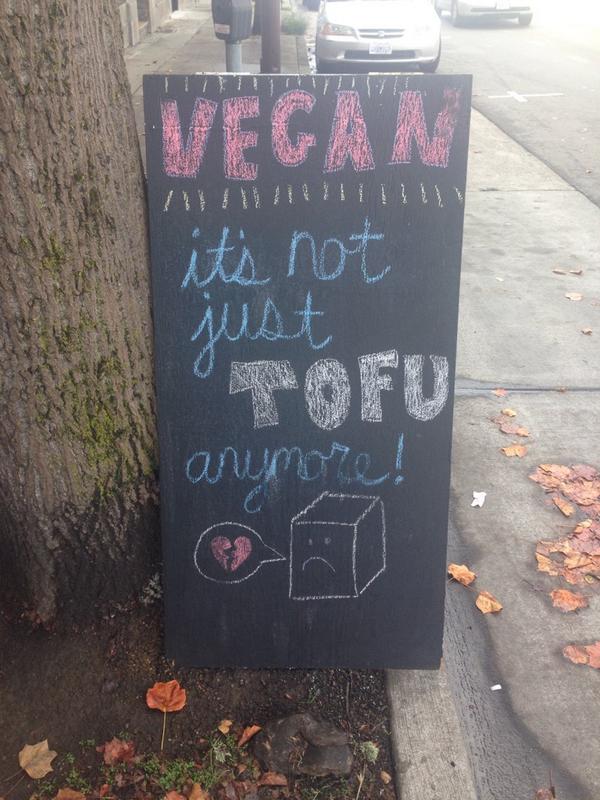 VEGAN
it's not
just
TOFU
anymore!